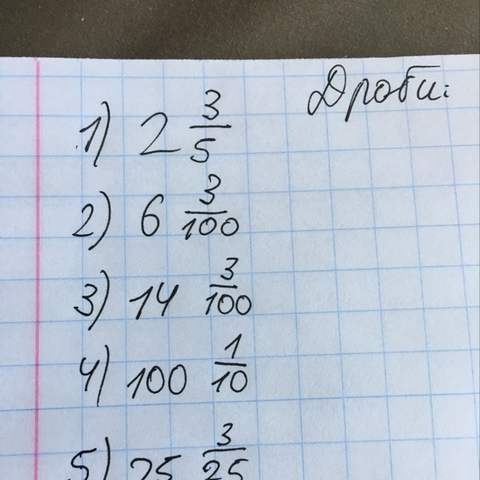 Дроби:
1) 2 3/5
2) 6 3/100
3) 14 3/100
4) 100 1/10
5) 25 3/25